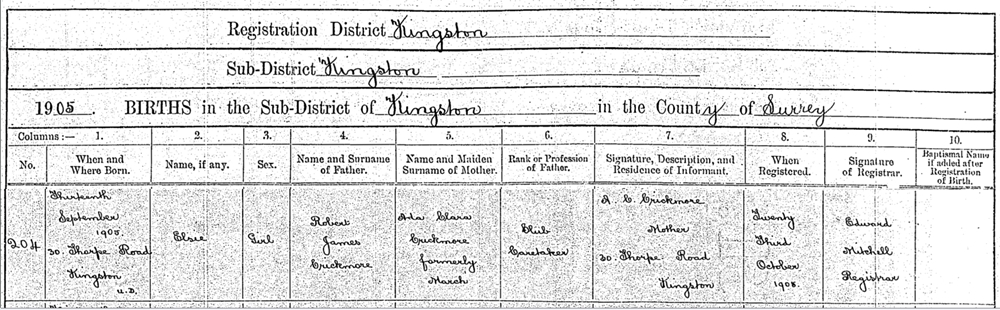 Registration District Kingston
Sub-District Kingston
1905. BIRTHS in the Sub-District of Kingston in the County of Surrey
Columns :— 1. 2. 3. 4. 5. 6. 7. 8. 9. 10.
No. When and Where Born. Name, if any. Sex. Name and Surname of Father. Name and Maiden Surname of Mother. Rank or Profession of Father. Signature, Description, and Residence of Informant. When Registered. Signature of Registrar. Baptismal Name if added after Registration of Birth.
204
Thirteenth
September
1905.
30. Thorpe Road
Kingston
U.D.
Elsie
Girl
Robert
James
Crickmore
Ada Clara
Crickmore
formerly
March
Club
Caretaker
A. C. Crickmore
Mother
30. Thorpe Road
Kingston
Twenty
Third
October
1905.
Edward
Mitchell
Registrar